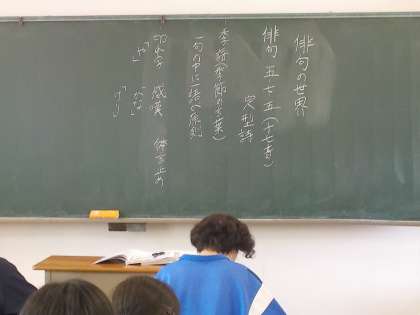 俳句の世界
俳句 五・七・五(十七音)
定型詩
季語(季節の言葉)
一句の中に一語(原則)
切れ字 感嘆 体言止め
「や」「かな」「けり」